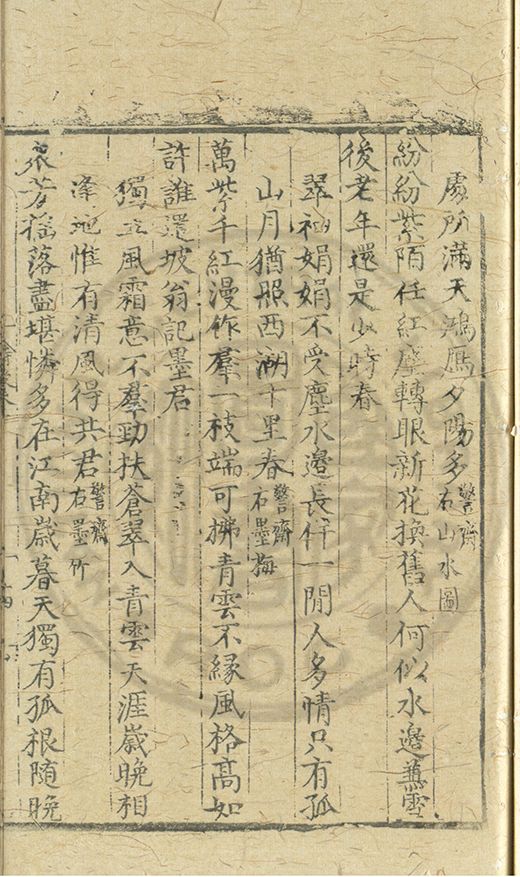 處所滿天鴻鴈夕陽多 警齋右山水圖
紛紛紫陌任紅塵轉眼新花換舊人何似水邉兼雪
後老年還是少時春
翠袖娟娟不受塵水邊長伴一閒人多情只有孤
山月猶照西湖十里春 警齋右墨梅
萬紫千紅漫作羣一枝端可拂青雲不緣風格髙如
許誰還坡翁記墨君
獨立風霜意不羣勁扶蒼翠入青雲天涯歲晩相
逢迎惟有清風得共君 警齋右墨竹
衆芳揺落盡堪憐多在江南歲暮天獨有孤根随晩